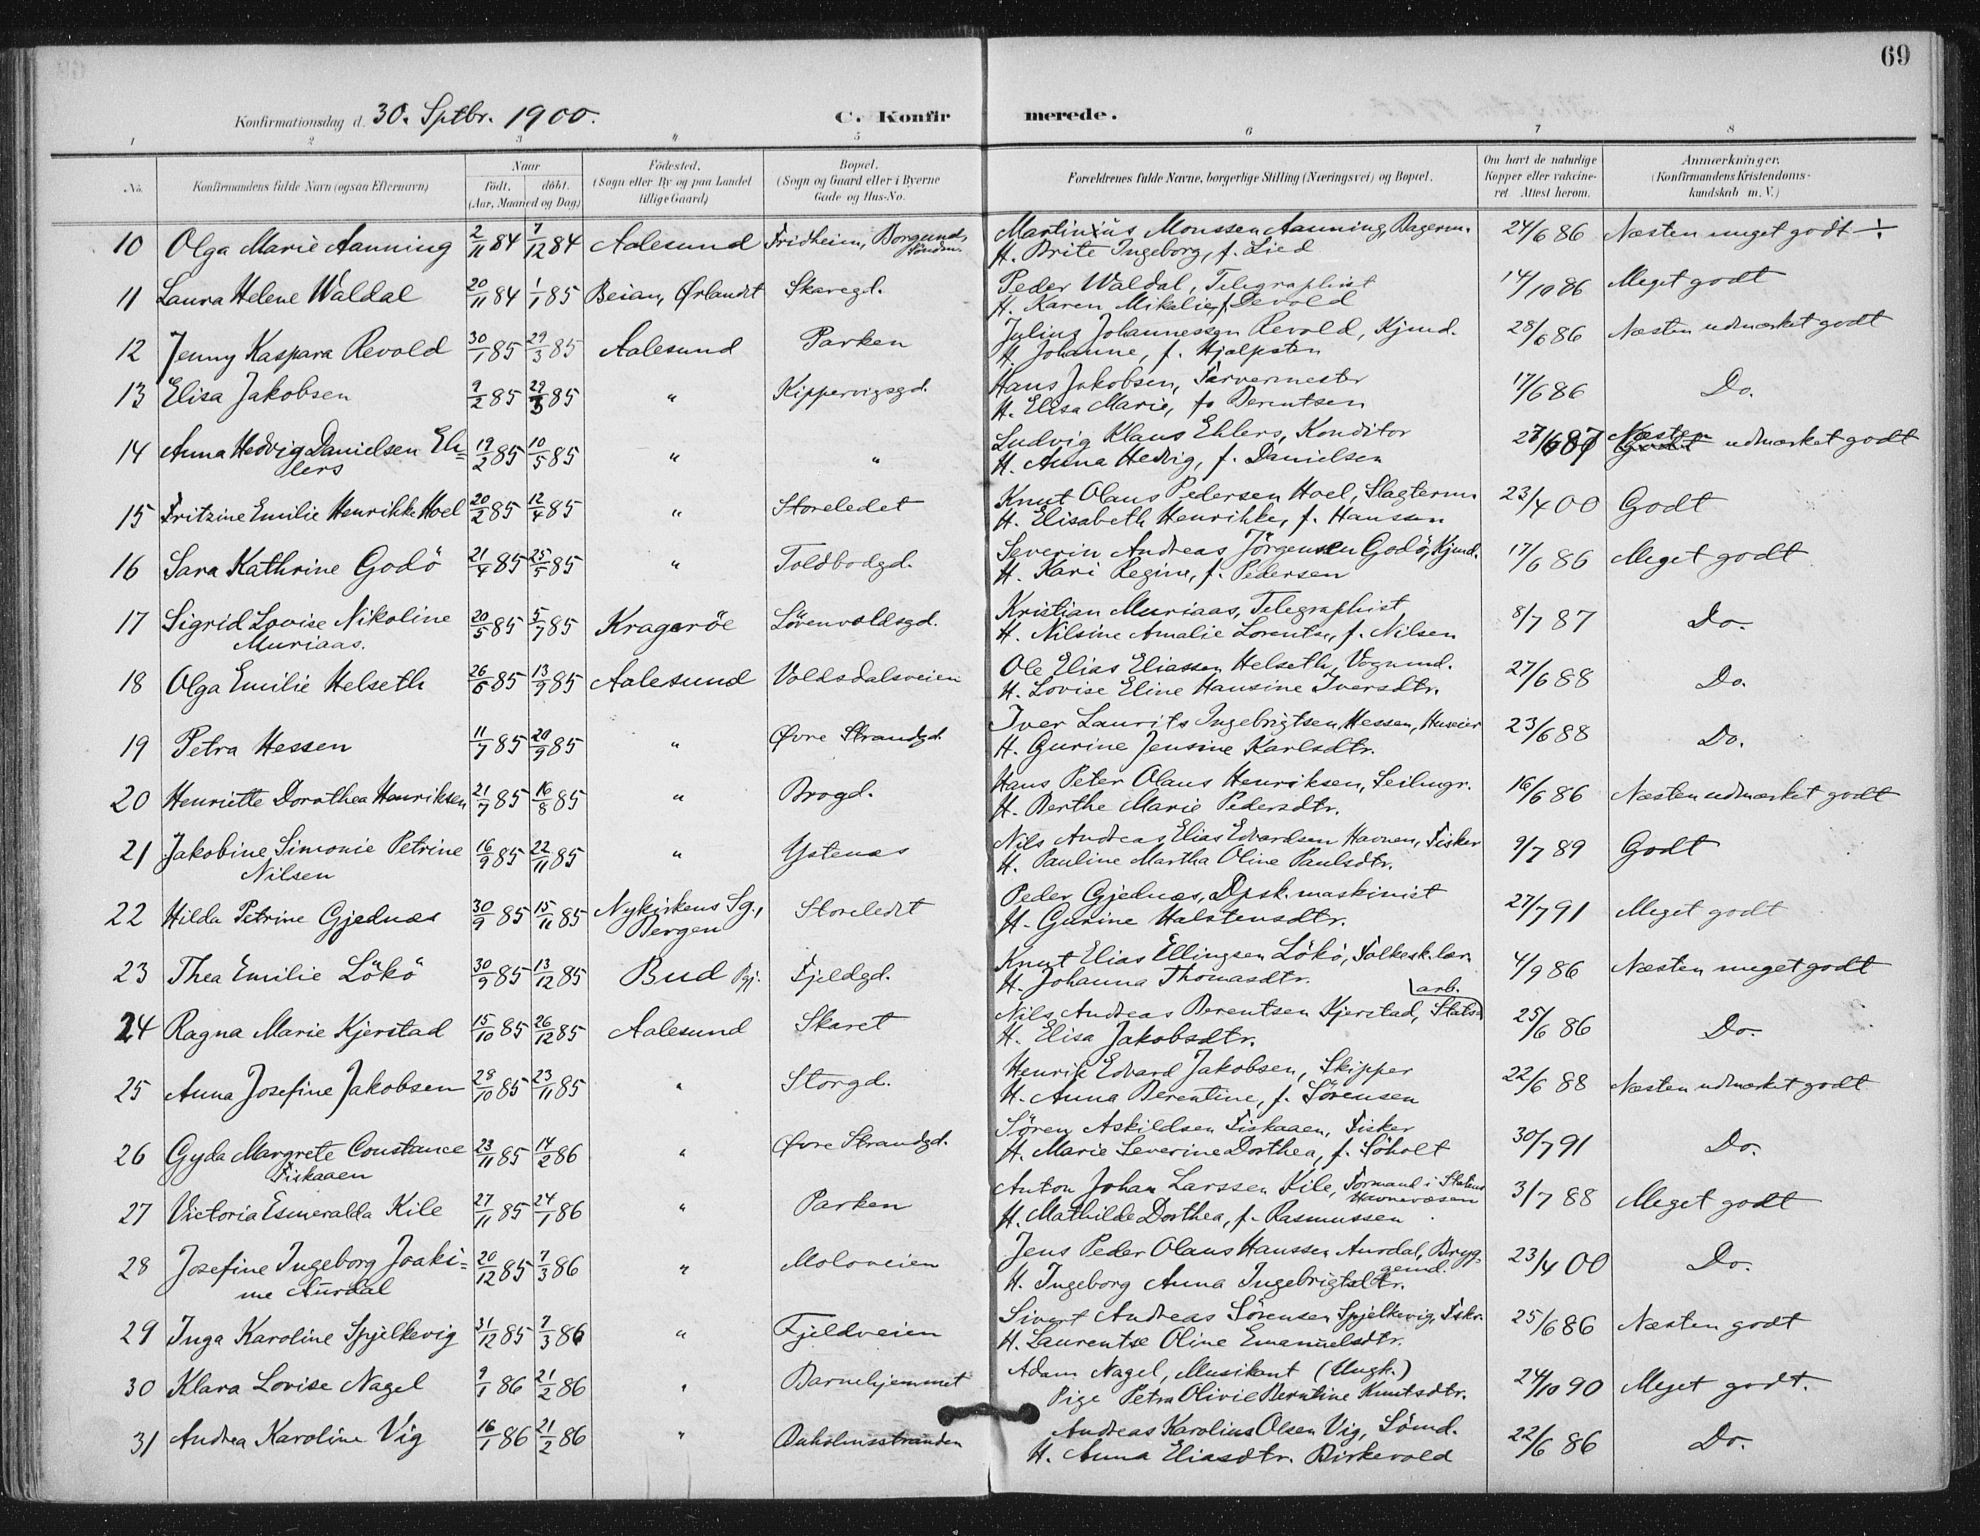 69
Konfirmationsdag d. 30. Sptbr. 1900. C. Konfirmerede.
1 2 3 4 5 6 7 8
No. Konfirmandens fulde Navn (ogsaa Efternavn) Naar født. døbt. (Aar, Maaned og Dag) Fødested. (Sogn eller By og paa Landet tillige Gaard) Bopæl. (Sogn og Gaard eller i Byerne Gade og Hus-No. Forældrenes fulde Navne, borgerlige Stilling (Næringsvei) og Bopæl. Om havt de naturlige Kopper eller vaccineret. Attest herom. Anmærkninger. (Konfirmandens Kristendomskundskab m. V.)
10 Olga Marie Aanning 2/11 84 7/12 84 Aalesund Fridheim, Borgund, Söndm. Martinius Monssen Aanning, Bagerm. 24/6 86 Næsten meget godt -:-
H. Brite Ingeborg, f. Lied
11 Laura Helene Waldal 20/11 84 1/1 85 Beian, Ørlandet Skaregd. Peder Waldal, Telegraphist 14/10 86 Meget godt
H. Karen Mikalie, f. Devold
12 Jenny Kaspara Revold 30/1 85 29/3 85 Aalesund Parken Julius Johannessen Revold, Kjmd. 28/6 86 Næsten udmærket godt
H. Johanne, f. Hjalpsten
13 Elisa Jakobsen 9/2 85 29/3 85 " Kippervigsgd. Hans Jakobsen, Farvermester 17/6 86 Do.
H. Elisa Marie, f. Berentsen
14 Anna Hedvig Danielsen Eh= 19/2 85 10/5 85 " " Ludvig Klaus Ehlers, Konditor 6 87 Næsten udmærket godt
lers H. Anna Hedvig, f. Danielsen
15 Fritzine Emilie Henrikke Hoel 20/2 85 12/4 85 " Storeledet Knut Olaus Pedersen Hoel, Slagterm. 23/4 00 Godt
H. Elisabeth Henrikke, f. Hanssen
16 Sara Kathrine Godö 21/4 85 25/5 85 " Toldbodgd. Severin Andreas Jörgensen Godö, Kjmd. 17/6 86 Meget godt
H. Kari Regine, f. Pedersen
17 Sigrid Lovise Nikoline 20/5 85 5/7 85 Krageröe Lövenvoldsgd. Kristian Muriaas, Telegraphist 8/7 87 Do.
Muriaas. H. Nilsine Amalie Lorentse, f. Nilsen
18 Olga Emilie Helseth 26/6 85 13/9 85 Aalesund Voldsdalsveien Ole Elias Eliassen Helseth, Vognmd. 27/6 88 Do.
H. Lovise Eline Hansine Iversdtr.
19 Petra Hessen 11/7 85 20/9 85 " Øvre Strandgd. Iver Laurits Ingebrigtsen Hessen, Huseier 23/6 88 Do.
H. Gurine Jensine Karlsdtr.
20 Henriette Dorothea Henriksen 21/7 85 16/8 85 " Brogd. Hans Peter Olaus Henriksen, Seilmgr. 16/6 86 Næsten udmærket godt
H. Berthe Marie Pedersdtr.
21 Jakobine Simonie Petrine 16/9 85 22/11 85 " Ystenæs Nils Andreas Elias Edvardsen Havnen, Fisker 9/7 89 Godt
Nilsen H. Pauline Martha Oline Paulsdtr.
22 Hilda Petrine Gjednæs 30/9 85 15/11 85 Nykirkens Sg., Bergen Storeledet Peder Gjednæs, Dpsk. maskinist 27/7 91 Meget godt
H. Gurine Halstensdtr.
23 Thea Emilie Lökö 30/9 85 13/12 85 Bud Pgj. Fjeldgd. Knut Elias Ellingsen Lökö, Folkesk. lær. 4/9 86 Næsten meget godt
H. Johanna Thomasdtr.
24 Ragna Marie Kjerstad 15/10 85 26/12 85 Aalesund Skaret Nils Andreas Berentsen Kjerstad, Stats arb. 25/6 86 Do.
H. Elisa Jakobsdtr.
25 Anna Josefine Jakobsen 28/10 85 23/11 85 " Storgd. Henrik Edvard Jakobsen, Skipper 22/6 88 Næsten udmærket godt
H. Anna Berentine, f. Sörensen
26 Gyda Margrete Constance 23/11 85 14/2 86 " Øvre Strandgd. Sören Askildsen Fiskaaen, Fisker 30/7 91 Do.
Fiskaaen H. Marie Severine Dorthea, f. Söholt
27 Victoria Esmeralda Kile 27/11 85 24/1 86 " Parken Anton Johan Larssen Kile, Formand i Statens Havnevæsen 3/7 88 Meget godt
H. Mathilde Dorthea, f. Rasmussen
28 Josefine Ingeborg Joaki= 20/12 85 7/3 86 " Moloveien Jens Peder Olaus Hanssen Aurdal, Bryggemd. 23/4 00 Do.
me Aurdal H. Ingeborg Anna Ingebrigtsdtr.
29 Inga Karoline Spjelkevig 31/12 85 7/3 86 " Fjeldveien Sivert Andreas Sörensen Spjelkevig, Fiskr. 25/6 86 Næsten godt
H. Laurentse Oline Emanuelsdtr.
30 Klara Lovise Nagel 9/1 86 21/2 86 " Barnehjemmet Adam Nagel, Musikant (Ungk.) 24/10 90 Meget godt.
Pige Petra Olivie Berntine Knutsdtr.
31 Andrea Karoline Vig 16/1 86 21/2 86 " Buholmsstranden Andreas Karolius Olsen Vig, Sömd. 22/6 86 Do.
H. Anna Eliasdtr. Birkevold